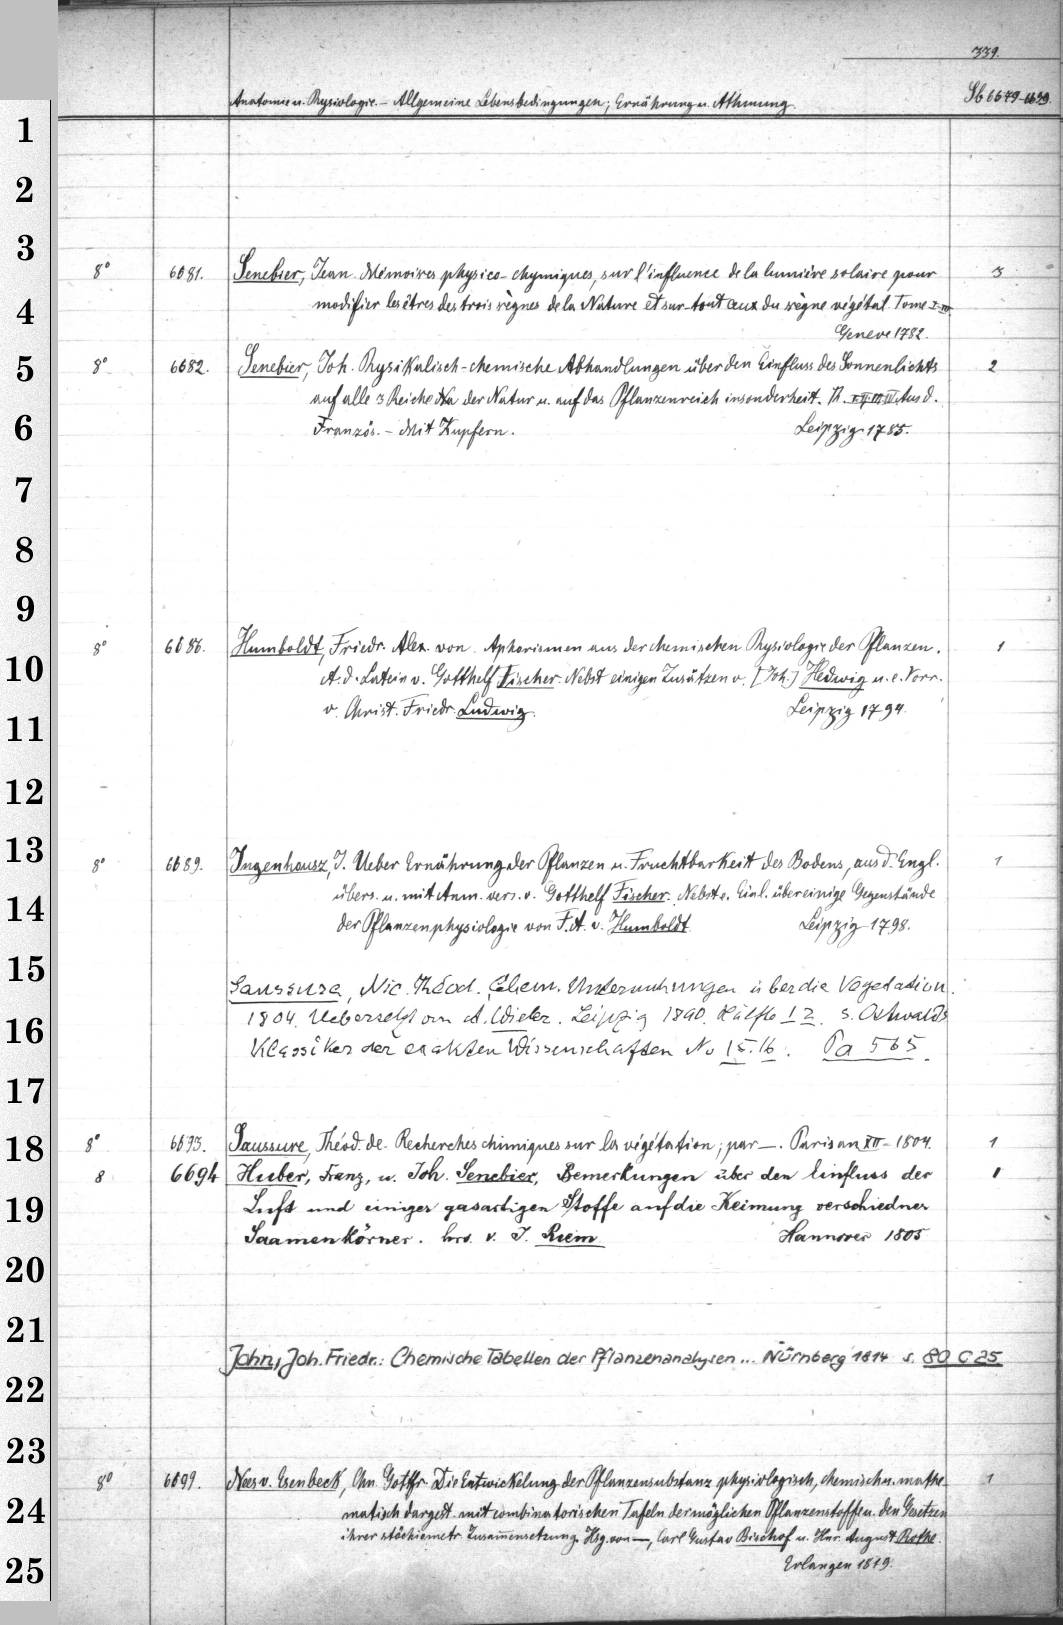 339.
Anatomie u. Physiologie. – Allgemeine Lebensbedingungen; Ernährung u. Athmung. Sb 6679-6699
1
2
3
8° 6681. Senebier, Jean. Mémoires physico-chymiques, sur l'influence de la lumière solaire pour 3
4 modifier les êtres des trois règnes de la Nature et sur-tout ceux du règne végétal. Tome I-III
Geneve 1782.
5 8° 6682. Senebier, Joh. Physikalisch-chemische Abhandlungen über den Einfluss des Sonnenlichts 2
auf alle 3 Reiche der Natur u. auf das Pflanzenreich insonderheit. Th. I.II.III.IV. Aus d.
6 Französ. – Mit Kupfern. Leipzig 1785.
7
8
9
8° 6686. Humboldt, Friedr. Alex. von. Aphorismen aus der chemischen Physiologie der Pflanzen. 1
10 A. d. Latein v. Gotthelf Fischer. Nebst einigen Zusätzen v. [Joh.] Hedwig u. e. Vorr.
11 v. Christ. Friedr. Ludwig. Leipzig 1794.
12
13 8° 6689. Ingenhousz, J. Ueber Ernährung der Pflanzen u. Fruchtbarkeit des Bodens, aus d. Engl. 1
14 übers. u. mit Anm. vers. v. Gotthelf Fischer. Nebst e. Einl. über einige Gegenstände
der Pflanzenphysiologie von F. A. v. Humboldt Leipzig 1798.
15 Saussure, Nic. Théod. Chem. Untersuchungen über die Vegetation.
16 1804. Uebersetzt von A. Wieler. Leipzig 1890. Hälfte 1 2. s. Ostwalds
Klassiker der exakten Wissenschaften No 15.16. Pa 565.
17
18 8° 6693. Saussure, Théod. de. Recherches chimiques sur la végétation; par —. Paris an XII – 1804. 1
8 6694 Huber, Franz, u. Joh. Senebier, Bemerkungen über den Einfluss der 1
19 Luft und einiger gasartigen Stoffe auf die Keimung verschiedner
Saamenkörner. hrs. v. J. Riem Hannover 1805
20
21
John, Joh. Friedr.: Chemische Tabellen der Pflanzenanalysen ... Nürnberg 1814 s. 80 C 25
22
23
8° 6699. Nees v. Esenbeck, Chn. Gottfr. Die Entwickelung der Pflanzensubstanz physiologisch, chemisch u. mathe- 1
24 matisch dargest. mit combinatorischen Tafeln der möglichen Pflanzenstoffe u. den Gesetzen
ihrer stöchiometr. Zusammensetzung. Hsg. von —, Carl Gustav Bischof u. Hnr. August Rothe.
25 Erlangen 1819.